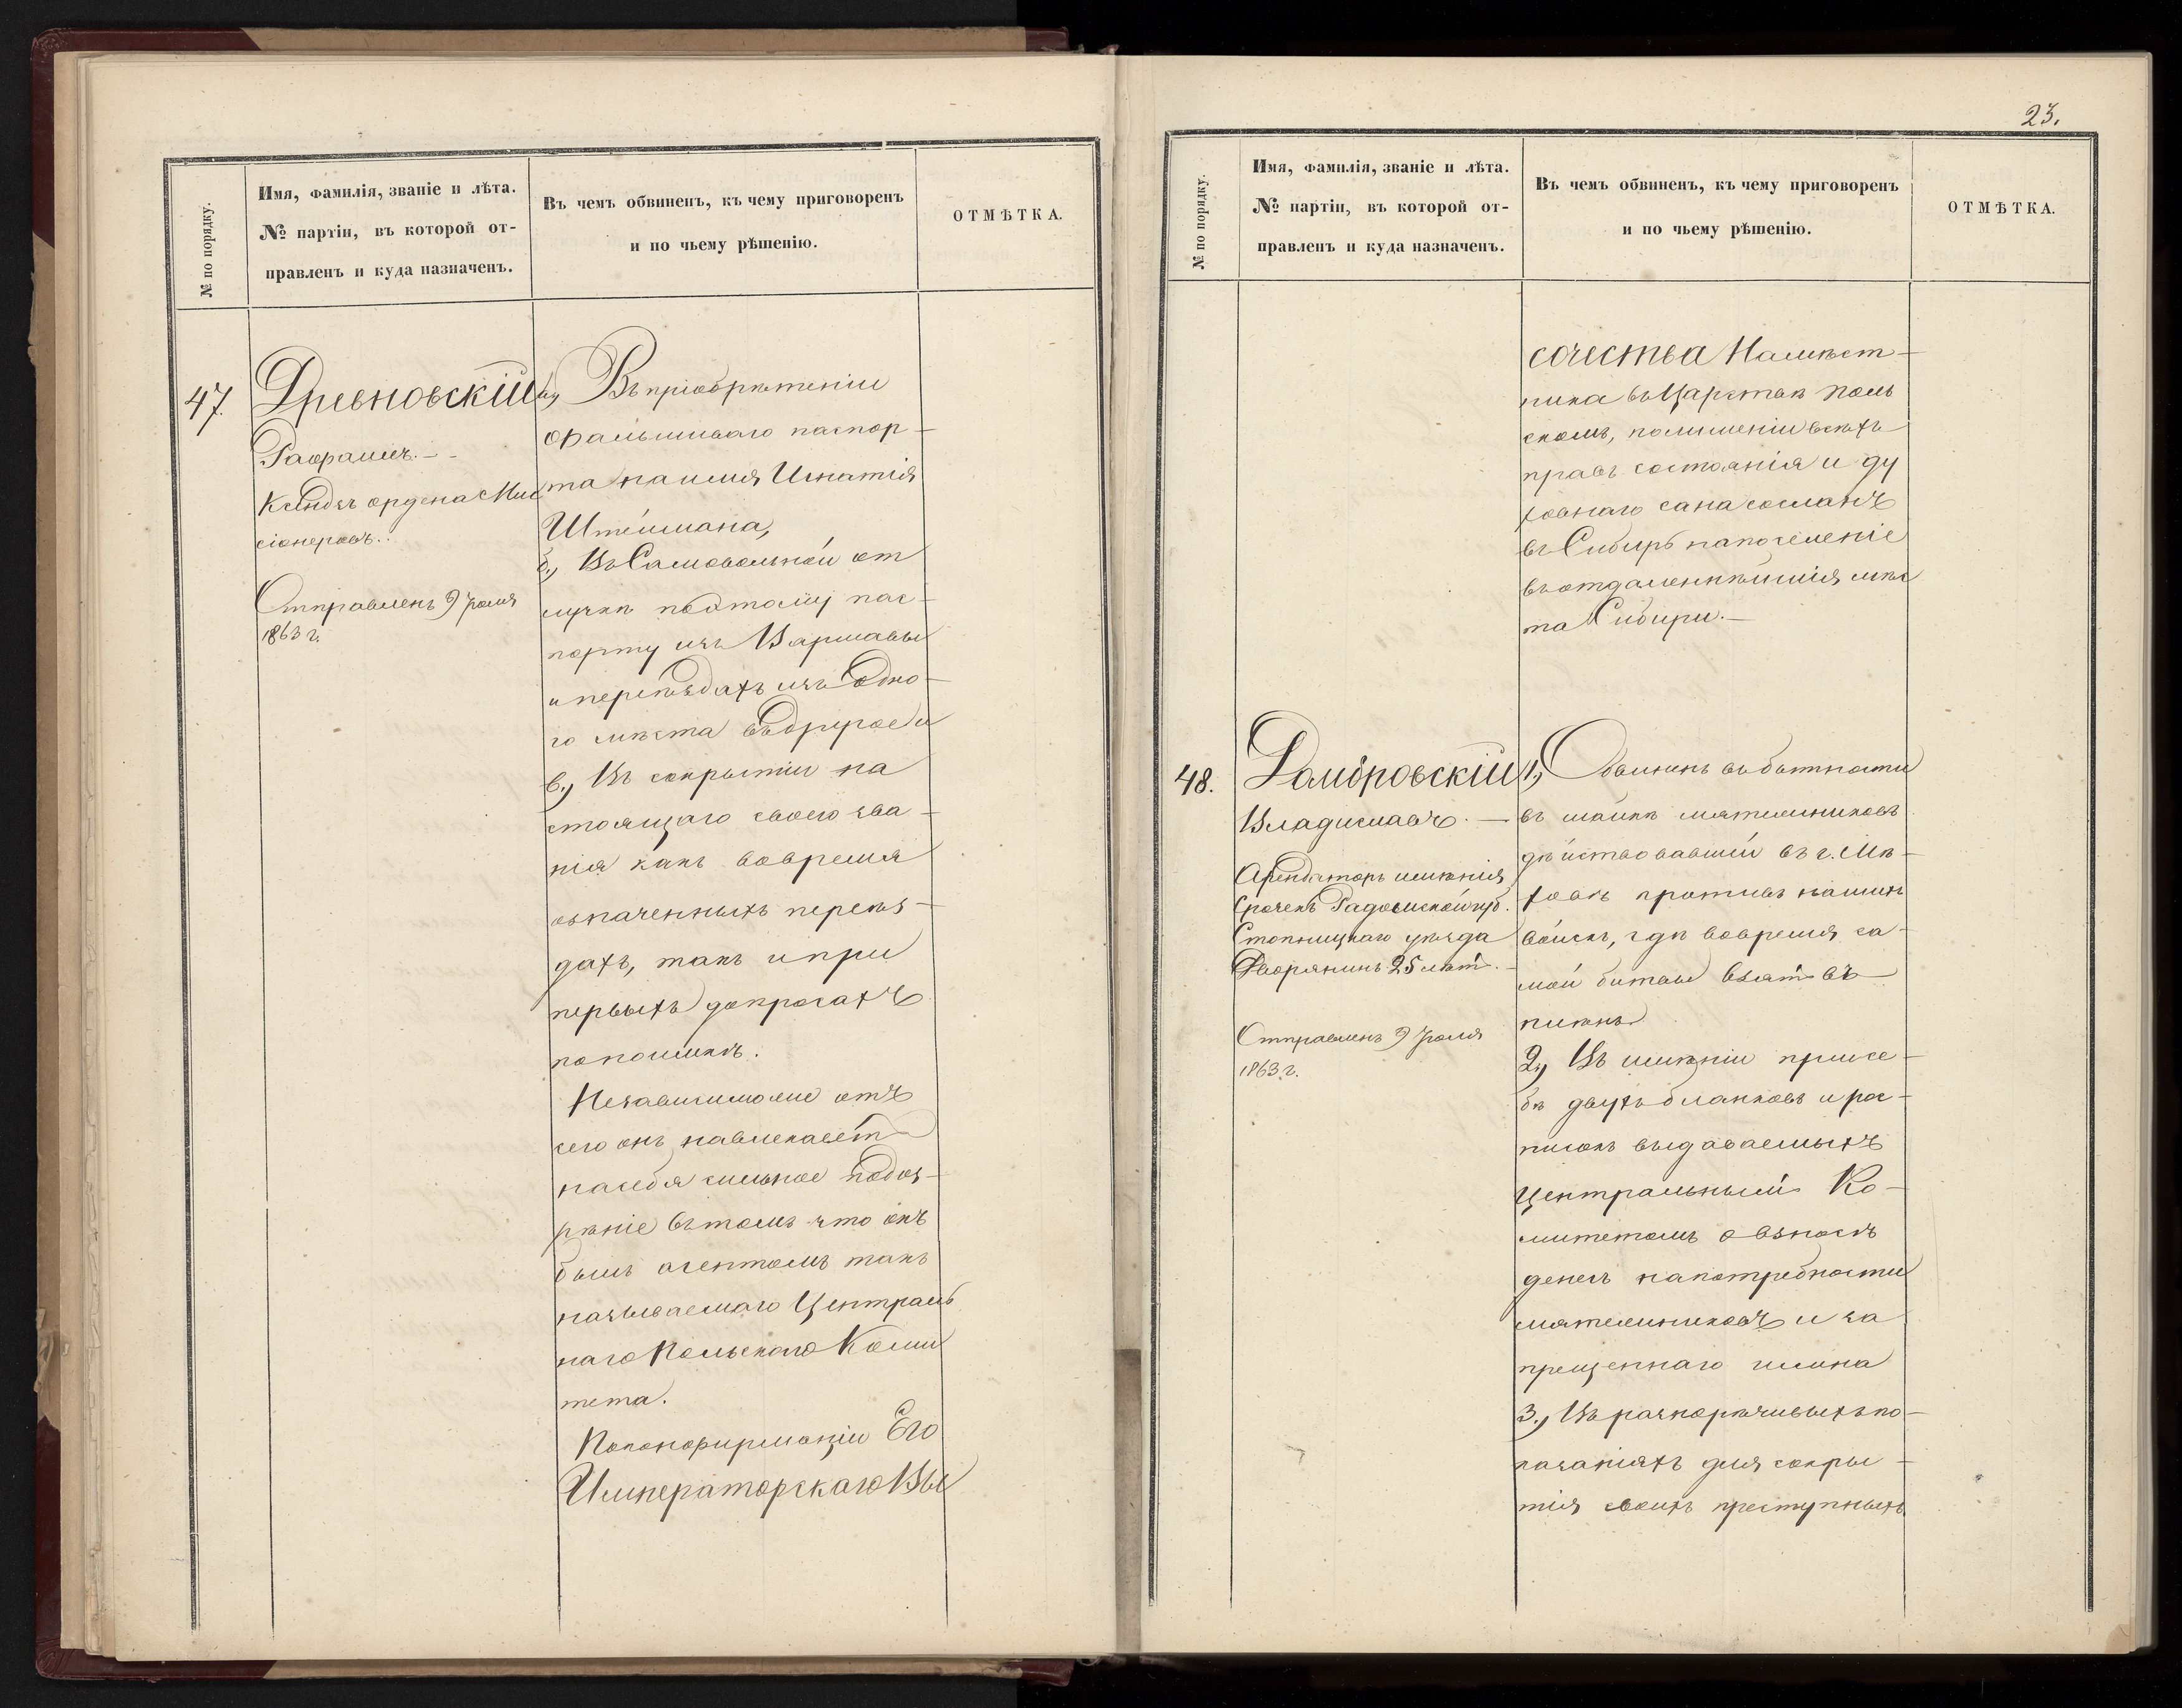 № по порядку.
Имя, фамилія, званіе и лѣта.
№ партіи, въ которой от-
правленъ и куда назначенъ.
Въ чемъ обвиненъ, къ чему приговоренъ
и по чьему рѣшенію.
ОТМѢТКА.
47.
Древновскій
Рафаилъ.
Ксендзъ ордена Мис
сіонеровъ.
Отправленъ 9 Іюля
1863 г.
а) Въ пріобрѣтеніи
фальшиваго паспор-
та на имя Игнатія
Штейшана,
б.) Въ Самовольной от
лучкѣ по этому пас-
порту изъ Варшавы
и переѣздахъ изъ одно-
го мѣста въ другое и
в.) Въ сокрытіи на
стоящаго своего зва-
нія какъ во время
означенныхъ переѣз-
дахъ, такъ и при
первыхъ допросахъ
по поимкѣ.
Независимо же отъ
сего онъ навлекаетъ
на себя сильное подоз-
рѣніе въ томъ что онъ
былъ агентомъ такъ
называемаго Централь
наго Польскаго Коми
тета.
По конфирмаціи Его
Императорскаго Вы
23.
№ по порядку.
Имя, фамилія, званіе и лѣта.
№ партіи, въ которой от-
правленъ и куда назначенъ.
Въ чемъ обвиненъ, къ чему приговоренъ
и по чьему рѣшенію.
ОТМѢТКА.
сочества Намѣст-
ника въ Царствѣ Поль
скомъ, по лишеніи всѣхъ
правъ состоянія и ду
ховнаго сана сосланъ
въ Сибирь на поселеніе
въ отдаленнѣйшія мѣс
та Сибири.—
48.
Домбровскій
Владиславъ.—
Арендаторъ имѣнія
Радомской губ.
Стопницкаго уѣзда
Дворянинъ 25 лѣтъ.
Отправленъ 9 Іюля
1863 г.
1.) Обвиненъ въ бытности
въ шайкѣ мятежниковъ
дѣйствовавшей въ г. Мѣ-
ховѣ противъ нашихъ
войскъ, гдѣ во время са-
мой битвы взятъ въ
плѣнъ.
2.) Въ имѣніи при се-
бѣ двухъ бланковъ и рос-
писокъ выдаваемыхъ
Центральнымъ Ко-
митетомъ о взносѣ
денегъ на потребности
мятежниковъ и за
прещеннаго гимна
3.) Въ разнорѣчивыхъ по-
казаніяхъ для сокры-
тія своихъ преступныхъ